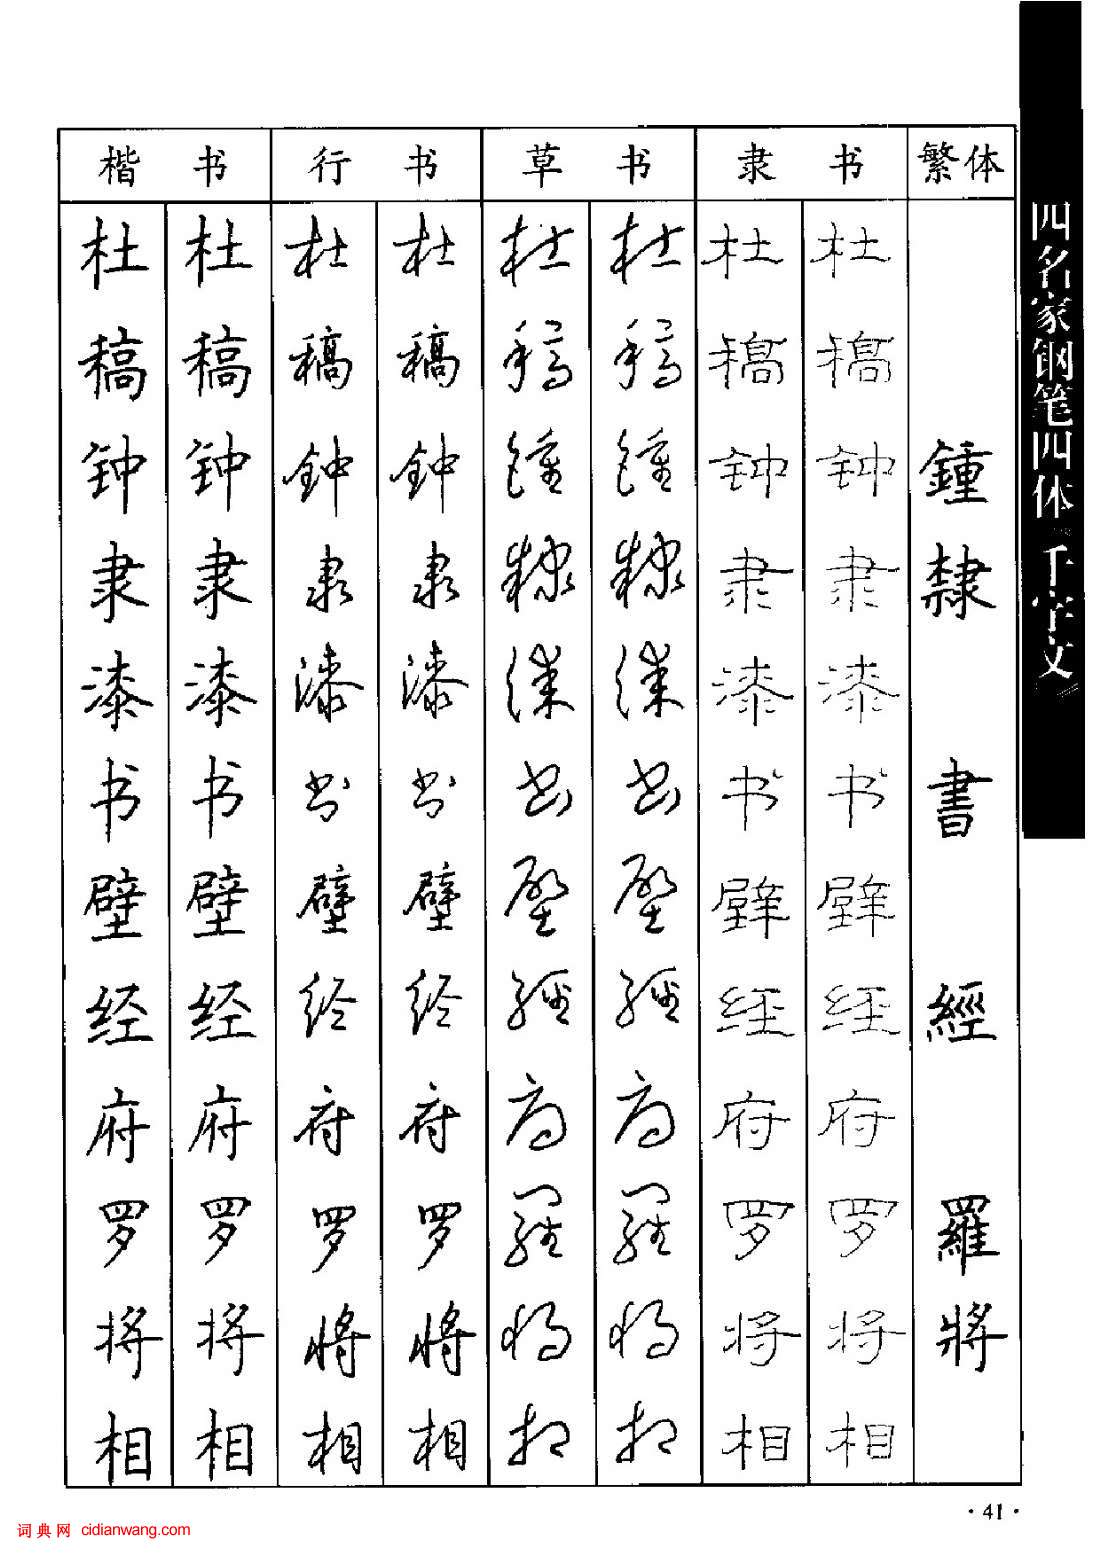 楷书 行书 草书 隶书 繁体
杜 杜 杜 杜 杜 杜 杜 杜
稿 稿 稿 稿 稿 稿 稿 稿
钟 钟 鈡 鈡 鍾 鍾 钟 钟 鍾
隶 隶 隶 隶 隸 隸 隶 隶 隸
漆 漆 漆 漆 漆 漆 漆 漆
书 书 书 书 书 书 书 书 書
壁 壁 壁 壁 壁 壁 壁 壁
经 经 经 经 經 經 经 经 經
府 府 府 府 府 府 府 府
罗 罗 罗 罗 羅 羅 罗 罗 羅
将 将 将 将 将 将 将 将 將
相 相 相 相 相 相 相 相
四名家钢笔四体《千字文》
·41·
词典网 cidianwang.com